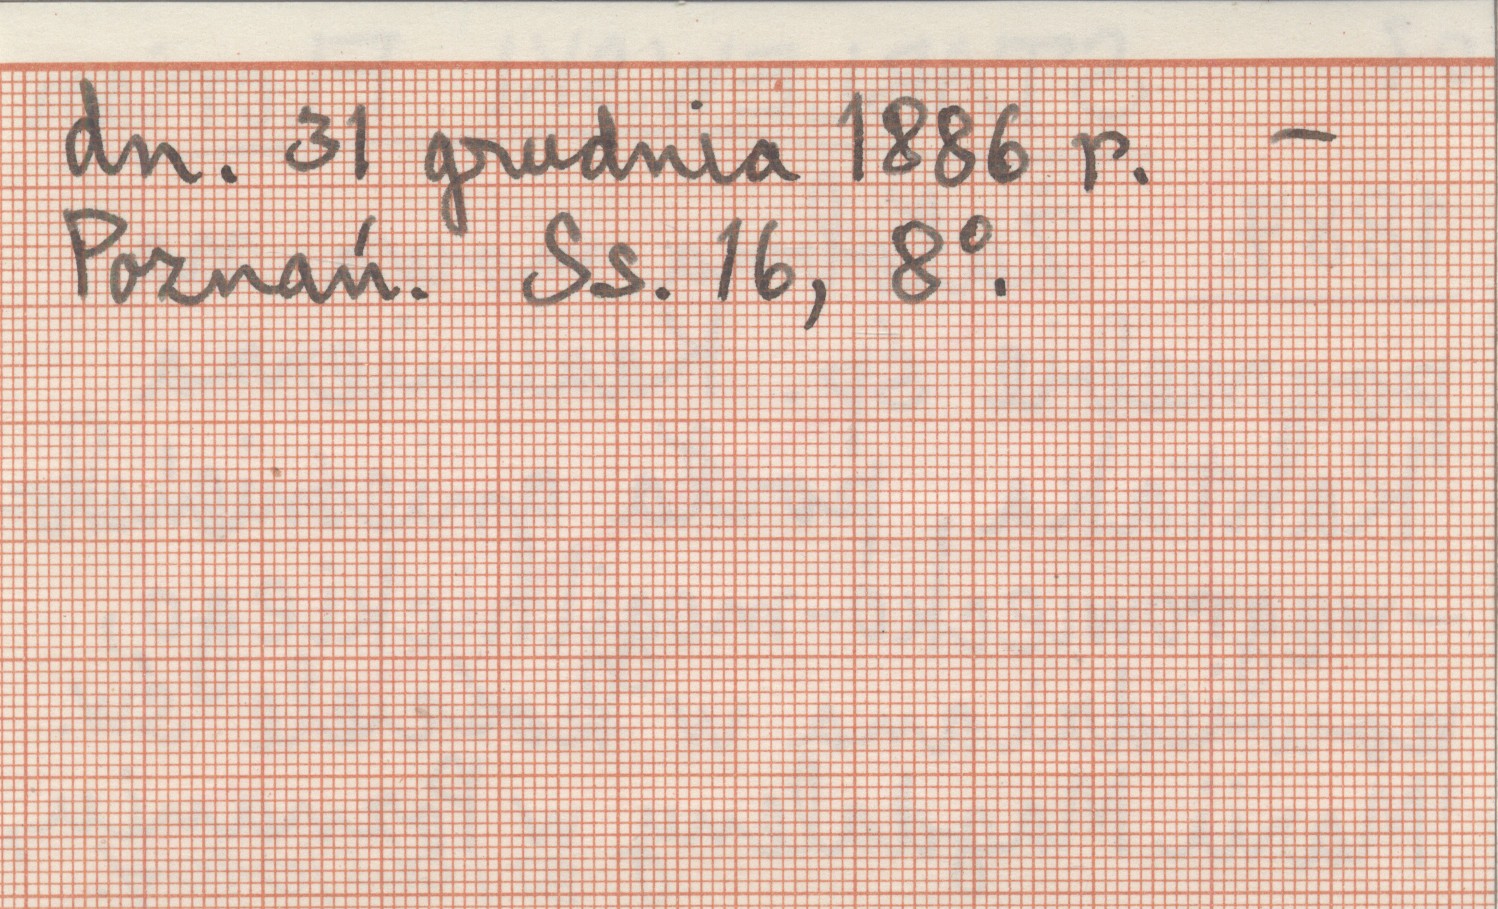 dn. 31 grudnia 1886 r. –
Poznań. Ss. 16, 8°.